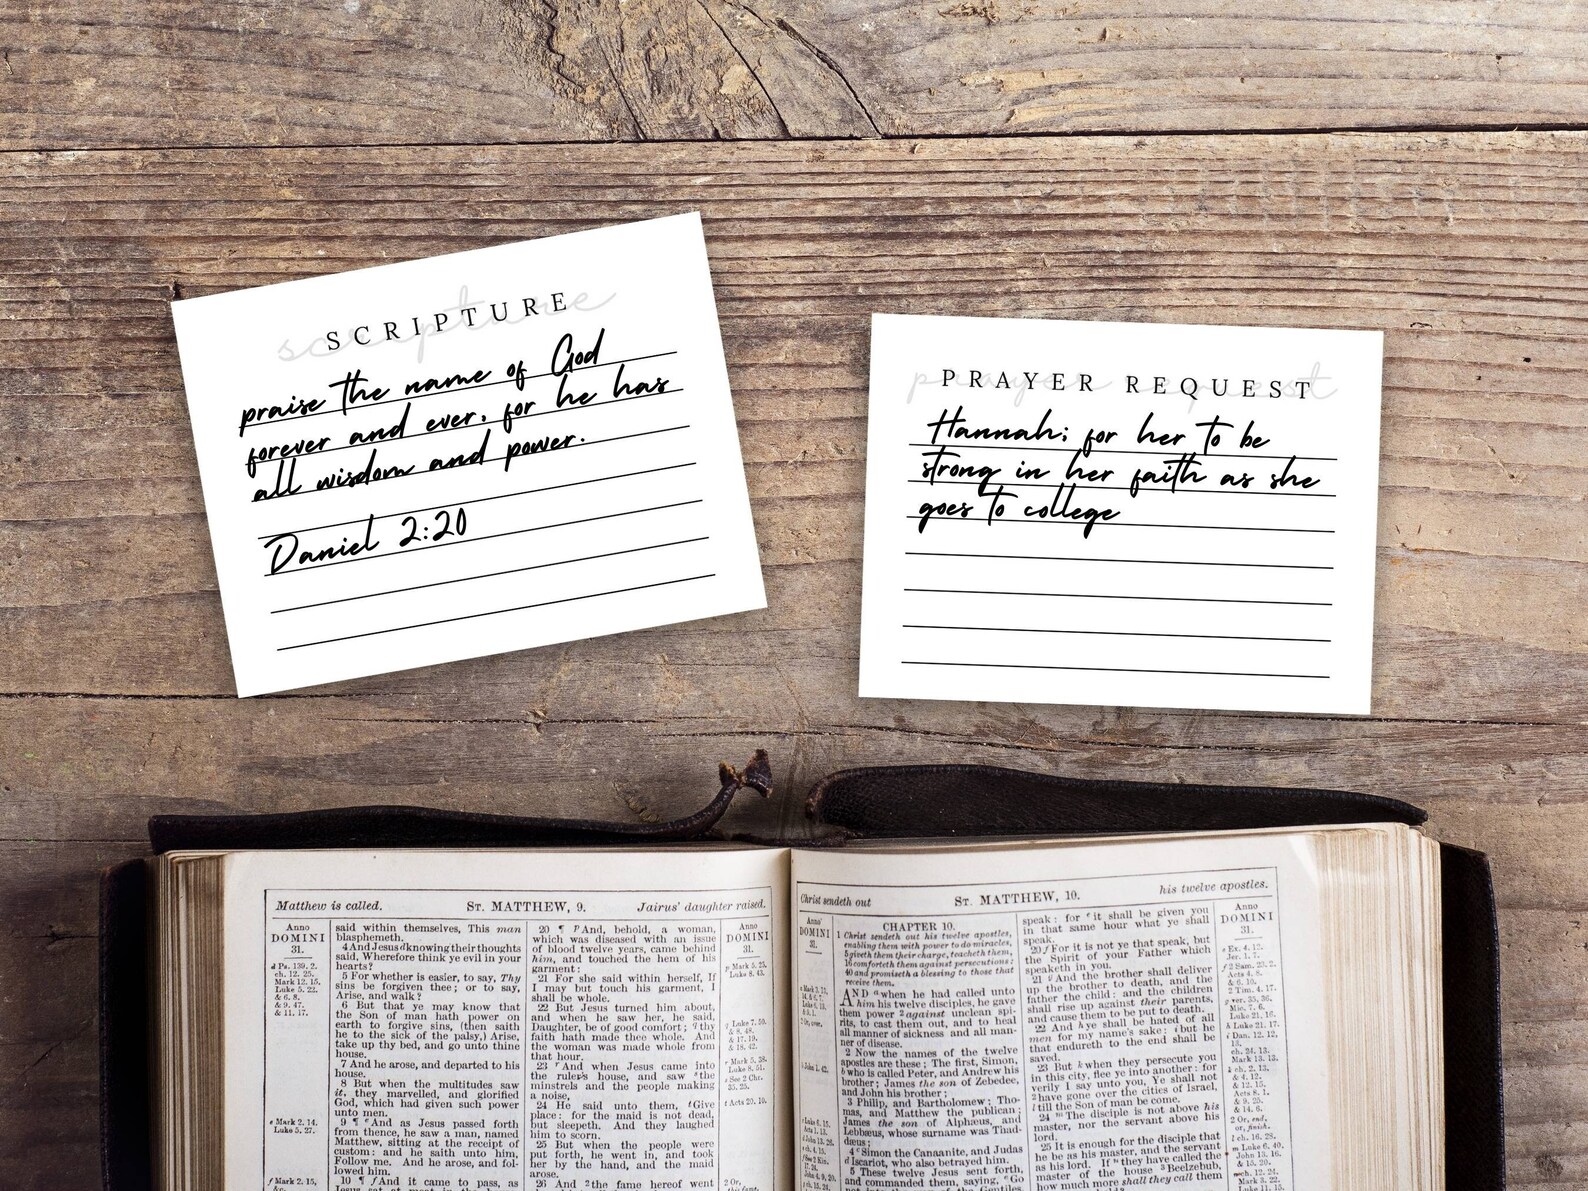 SCRIPTURE
scripture
praise the name of God
forever and ever, for he has
all wisdom and power.
Daniel 2:20
PRAYER REQUEST
prayer request
Hannah; for her to be
strong in her faith as she
goes to college
Matthew is called.
ST. MATTHEW, 9.
Jairus' daughter raised.
Anno
DOMINI
31.
d Ps. 139. 2.
ch. 12. 25.
Mark 12. 15.
Luke 5. 22.
& 6. 8.
& 9. 47.
& 11. 17.
e Mark 2. 14.
Luke 5. 27.
f Mark 2. 15,
&c.
said within themselves, This man
blasphemeth.
4 And Jesus d knowing their thoughts
said, Wherefore think ye evil in your
hearts?
5 For whether is easier, to say, Thy
sins be forgiven thee; or to say,
Arise, and walk?
6 But that ye may know that
the Son of man hath power on
earth to forgive sins, (then saith
he to the sick of the palsy,) Arise,
take up thy bed, and go unto thine
house.
7 And he arose, and departed to his
house.
8 But when the multitudes saw
it, they marvelled, and glorified
God, which had given such power
unto men.
9 ¶ e And as Jesus passed forth
from thence, he saw a man, named
Matthew, sitting at the receipt of
custom: and he saith unto him,
Follow me. And he arose, and fol-
lowed him.
10 ¶ f And it came to pass, as
Jesus sat at meat in the
20 ¶ p And, behold, a woman,
which was diseased with an issue
of blood twelve years, came behind
him, and touched the hem of his
garment:
21 For she said within herself, If
I may but touch his garment, I
shall be whole.
22 But Jesus turned him about,
and when he saw her, he said,
Daughter, be of good comfort; q thy
faith hath made thee whole. And
the woman was made whole from
that hour.
23 r And when Jesus came into
the ruler's house, and saw s the
minstrels and the people making
a noise,
24 He said unto them, t Give
place: for the maid is not dead,
but sleepeth. And they laughed
him to scorn.
25 But when the people were
put forth, he went in, and took
her by the hand, and the maid
arose.
26 And 2 the fame hereof went
Anno
DOMINI
31.
p Mark 5. 25.
Luke 8. 43.
q Luke 7. 50.
& 8. 48.
& 17. 19.
& 18. 42.
r Mark 5. 38.
Luke 8. 51.
s See 2 Chr.
35. 25.
t Acts 20. 10.
2 Or,
this fame.
Christ sendeth out
ST. MATTHEW, 10.
his twelve apostles.
Anno
DOMINI
31.
2 Or, over.
b John 1. 42.
CHAPTER 10.
1 Christ sendeth out his twelve apostles,
enabling them with power to do miracles,
5 giveth them their charge, teacheth them,
16 comforteth them against persecutions:
40 and promiseth a blessing to those that
receive them.
AND a when he had called unto
him his twelve disciples, he gave
them power 2 against unclean spi-
rits, to cast them out, and to heal
all manner of sickness and all man-
ner of disease.
2 Now the names of the twelve
apostles are these; The first, Simon,
b who is called Peter, and Andrew his
brother; James the son of Zebedee,
and John his brother;
3 Philip, and Bartholomew; Tho-
mas, and Matthew the publican;
James the son of Alphæus, and
Lebbæus, whose surname was Thad-
dæus;
4 c Simon the Canaanite, and Judas
d Iscariot, who also betrayed him.
5 These twelve Jesus sent forth,
and commanded them, saying, e Go
not into the way of the Gentiles,
speak: for e it shall be given you
in that same hour what ye shall
speak.
20 f For it is not ye that speak, but
the Spirit of your Father which
speaketh in you.
21 g And the brother shall deliver
up the brother to death, and the
father the child: and the children
shall rise up against their parents,
and cause them to be put to death.
22 And h ye shall be hated of all
men for my name's sake: i but he
that endureth to the end shall be
saved.
23 But k when they persecute you
in this city, flee ye into another: for
verily I say unto you, Ye shall not
2 have gone over the cities of Israel,
l till the Son of man be come.
24 m The disciple is not above his
master, nor the servant above his
lord.
25 It is enough for the disciple that
he be as his master, and the servant
as his lord. If n they have called the
master of the house 3 Beelzebub,
how much more shall they call them
Anno
DOMINI
31.
e Ex. 4. 12.
Jer. 1. 7.
f 2 Sam. 23. 2.
Acts 4. 8.
& 6. 10.
2 Tim. 4. 17.
g ver. 35, 36.
Mic. 7. 6.
Luke 21. 16.
h Luke 21. 17.
i Dan. 12. 12,
13.
ch. 24. 13.
Mark 13. 13.
k ch. 2. 13.
& 4. 12.
& 12. 15.
Acts 8. 1.
& 9. 25.
& 14. 6.
2 Or, end,
or, finish.
l ch. 16. 28.
m Luke 6. 40.
John 13. 16.
& 15. 20.
n ch. 12. 24.
Mark 3. 22.
Luke 11. 15.